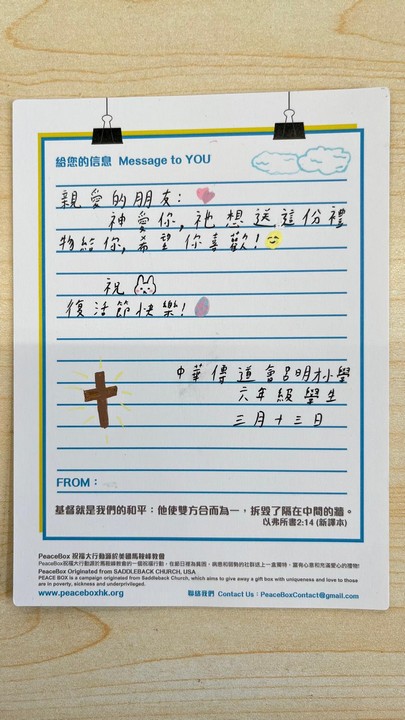 給您的信息 Message to YOU
親愛的朋友:
神愛你,祂想送這份禮
物給你,希望你喜歡!
祝
復活節快樂!
中華傳道會呂明才小學
六年級學生
三月十三日
FROM:
基督就是我們的和平:他使雙方合而為一,拆毀了隔在中間的牆。
以弗所書2:14 (新譯本)
PeaceBox 祝福大行動源於美國馬鞍峰教會
PeaceBox Originated from SADDLEBACK CHURCH, USA
PEACE BOX is a campaign originated from Saddleback Church, which aims to give away a gift box with uniqueness and love to those
are in poverty, sickness and underprivileged.
www.peaceboxhk.org 聯絡我們 Contact Us : PeaceBoxContact@gmail.com